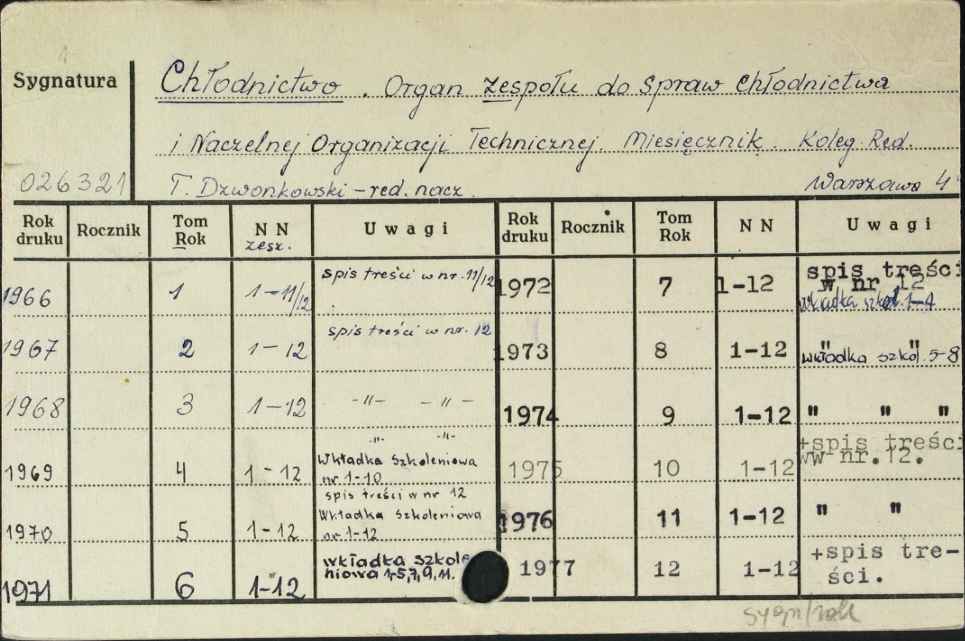 Sygnatura
Chłodnictwo. Organ zespołu do spraw chłodnictwa
i Naczelnej Organizacji Technicznej. Miesięcznik. Koleg. Red.
026321
T. Dzwonkowski – red. nacz. Warszawa 4°
Rok druku Rocznik Tom Rok NN zesz. Uwagi Rok druku Rocznik Tom Rok NN Uwagi
1966 1 1–11/12 spis treści w nr. 11/12 1972 7 1-12 spis treści w nr 12 wkładka szkol. 1-4
1967 2 1–12 spis treści w nr. 12 1973 8 1-12 " " wkładka szkol. 5-8
1968 3 1–12 –"– –"– 1974 9 1-12 " " "
1969 4 1-12 –"– –"– Wkładka Szkoleniowa nr 1-10 1975 10 1-12 +spis treści w nr. 12.
1970 5 1-12 spis treści w nr 12 Wkładka Szkoleniowa nr 1-12 1976 11 1-12 " "
1971 6 1-12 wkładka szkole niowa 1-5,7,9,11. 1977 12 1-12 +spis tre- ści.
sygn/rok